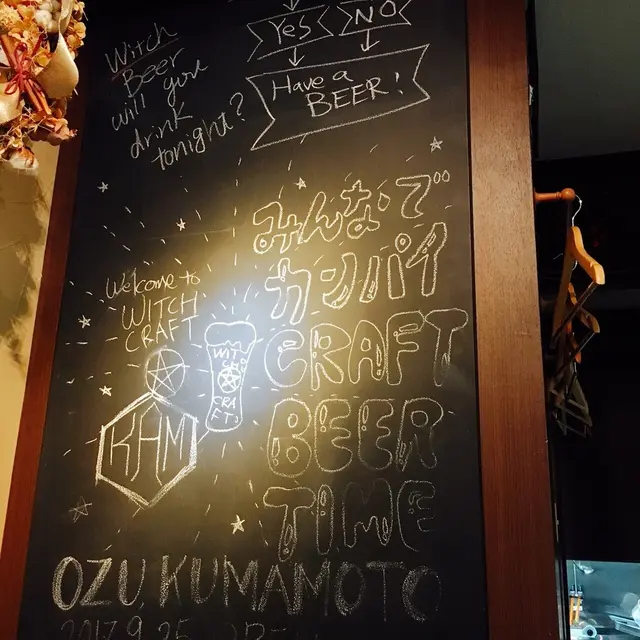 Witch
Beer
will you
drink
tonight?
Yes
NO
Have a
BEER!
みんなで
カンパイ
CRAFT
BEER
TIME
Welcome to
WITCH
CRAFT
WIT
CRA
FT
KHM
OZU KUMAMOTO
2017.9.25